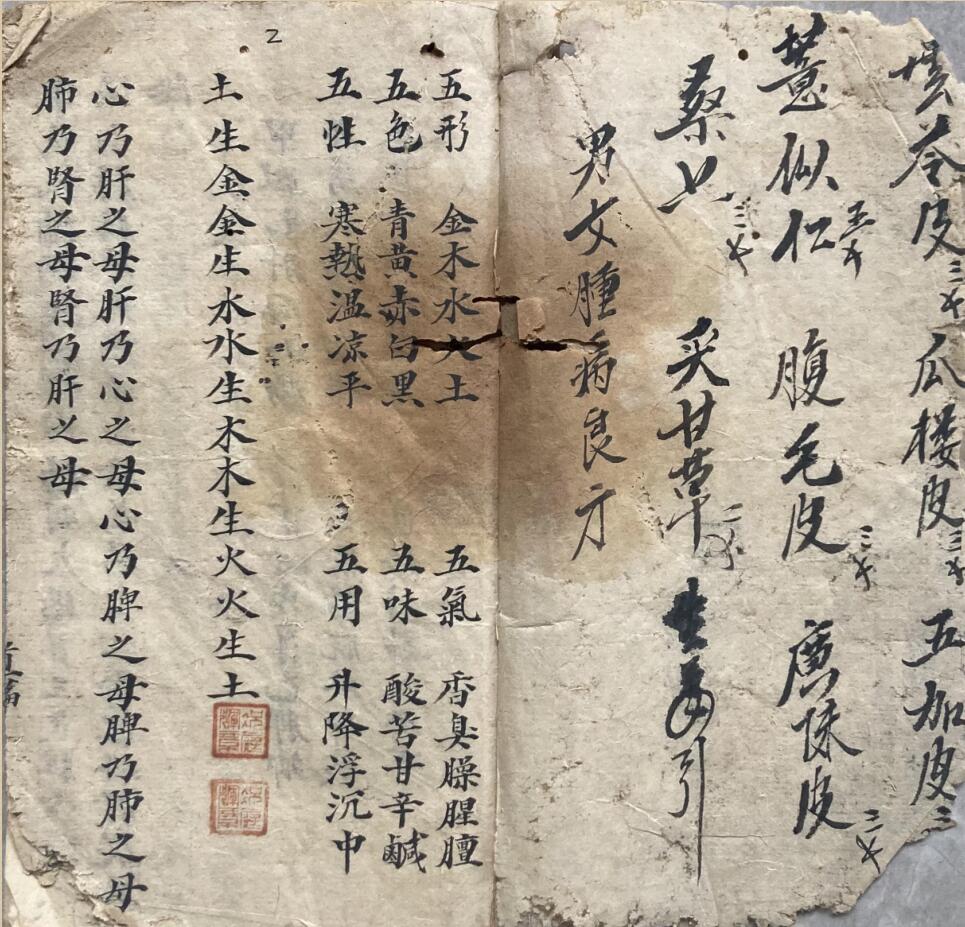 雲苓皮 三戈 瓜楼皮 三戈 五加皮 三
薏似仁 五戈 腹毛皮 三戈 廣陳皮 二戈
桑 三戈 炙甘草 二 生 引
男女腫病良方
2
五形 金木水火土 五氣 香臭臊腥膻
五色 青黄赤白黑 五味 酸苦甘辛鹹
五性 寒熱温凉平 五用 升降浮沉中
土生金金生水水生木木生火火生土
心乃肝之母肝乃心之母心乃脾之母脾乃肺之母
肺乃腎之母腎乃肝之母